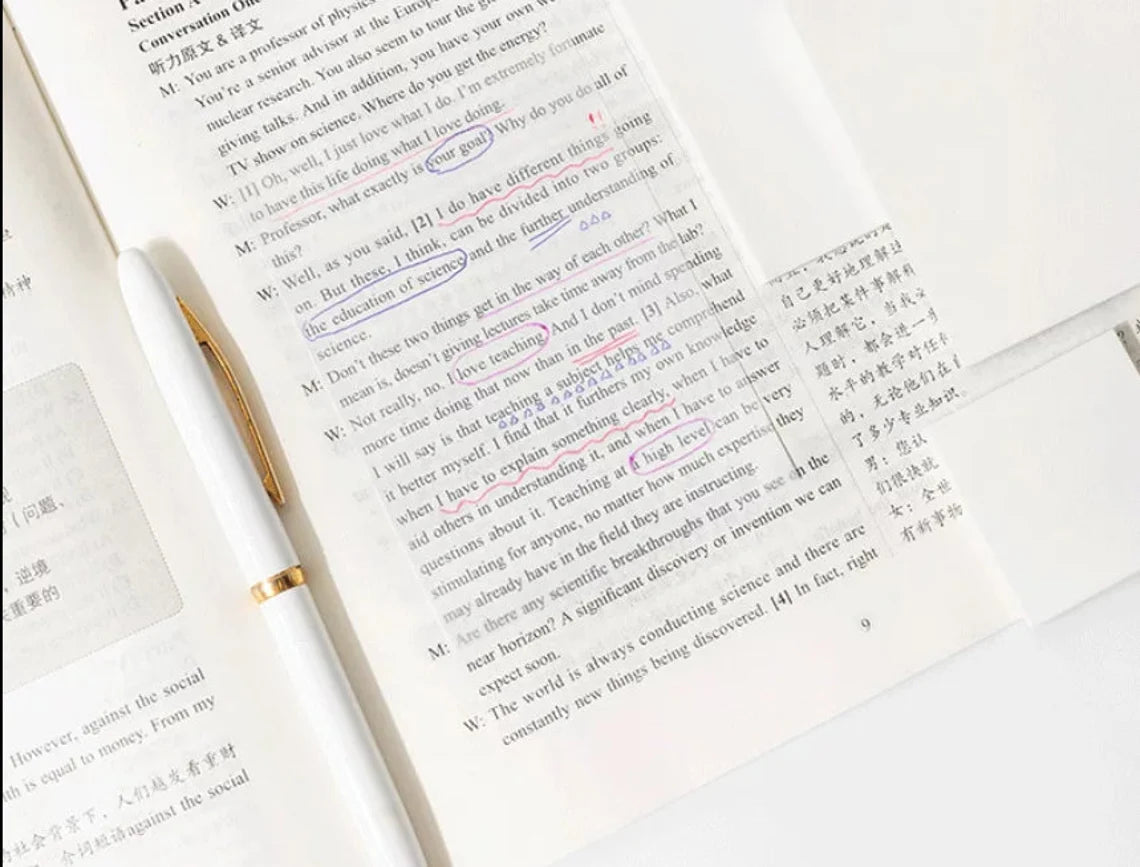 Section A
Conversation One
听力原文 & 译文
M: You are a professor of physics
You're a senior advisor at the Europe
nuclear research. You also seem to tour the
giving talks. And in addition, you have your own
TV show on science. Where do you get the energy?
W: [1] Oh, well, I just love what I do. I'm extremely fortunate
to have this life doing what I love doing.
M: Professor, what exactly is your goal? Why do you do all of
this?
W: Well, as you said, [2] I do have different things going
on. But these, I think, can be divided into two groups:
the education of science and the further understanding of
science.
M: Don't these two things get in the way of each other? What I
mean is, doesn't giving lectures take time away from the lab?
W: Not really, no. I love teaching. And I don't mind spending
more time doing that now than in the past. [3] Also, what
I will say is that teaching a subject helps me comprehend
it better myself. I find that it furthers my own knowledge
when I have to explain something clearly, when I have to
aid others in understanding it, and when I have to answer
questions about it. Teaching at a high level can be very
stimulating for anyone, no matter how much expertise they
may already have in the field they are instructing.
M: Are there any scientific breakthroughs that you see on the
near horizon? A significant discovery or invention we can
expect soon.
W: The world is always conducting science and there are
constantly new things being discovered. [4] In fact, right
9
自己更好地理解
必须把某件事解释
人理解它，当我
题时，都会进一步
水平的教学对任何
的，无论他们在
了多少专业知识。
男：您认
们很快就
女：全世
有新事物
精神
（问题、
，逆境
重要的
However, against the social
is equal to money. From my
社会背景下，人们越发看重财
介词短语against the social